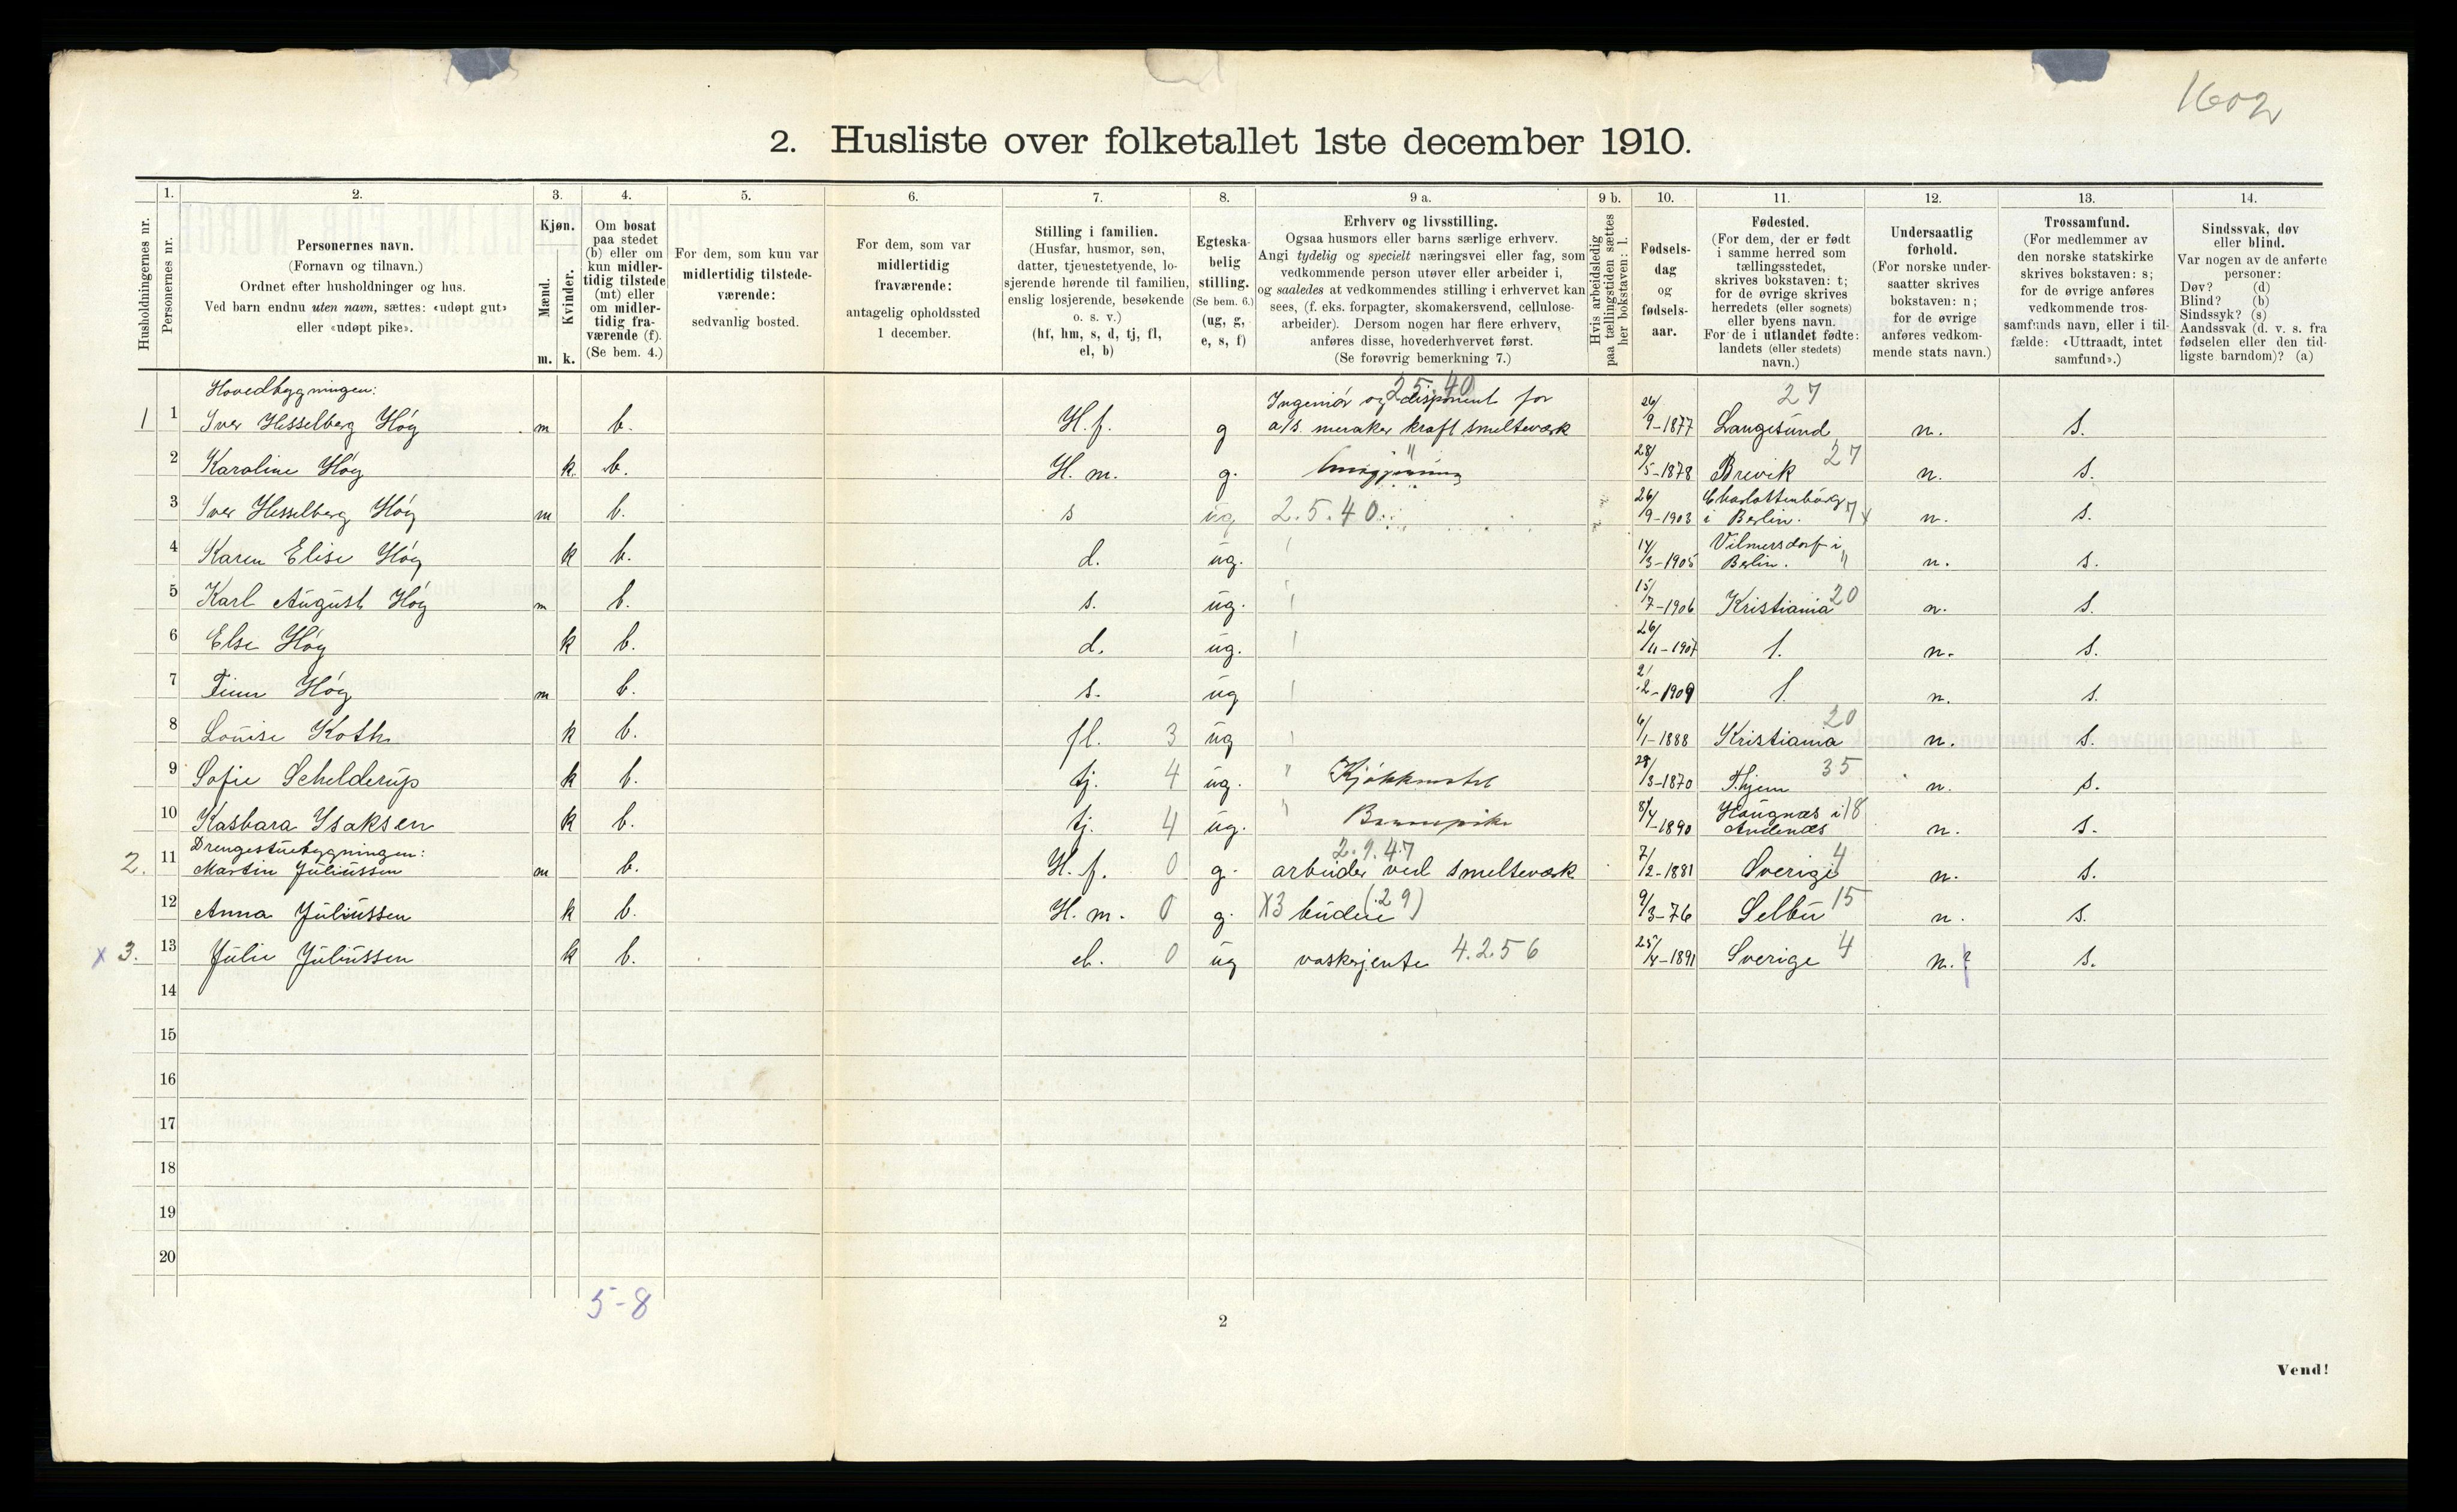 1602
2. Husliste over folketallet 1ste december 1910.
Husholdningernes nr.
1.
Personernes nr.
2.
Personernes navn.
(Fornavn og tilnavn.)
Ordnet efter husholdninger og hus.
Ved barn endnu uten navn, sættes: «udøpt gut»
eller «udøpt pike».
3.
Kjøn.
Mænd.
Kvinder.
m. k.
4.
Om bosat
paa stedet
(b) eller om
kun midler-
tidig tilstede
(mt) eller
om midler-
tidig fra-
værende (f).
(Se bem. 4.)
5.
For dem, som kun var
midlertidig tilstede-
værende:
sedvanlig bosted.
6.
For dem, som var
midlertidig
fraværende:
antagelig opholdssted
1 december.
7.
Stilling i familien.
(Husfar, husmor, søn,
datter, tjenestetyende, lo-
sjerende hørende til familien,
enslig losjerende, besøkende
o. s. v.)
(hf, hm, s, d, tj, fl,
el, b)
8.
Egteska-
belig
stilling.
(Se bem. 6.)
(ug, g,
e, s, f)
9 a.
Erhverv og livsstilling.
Ogsaa husmors eller barns særlige erhverv.
Angi tydelig og specielt næringsvei eller fag, som
vedkommende person utøver eller arbeider i,
og saaledes at vedkommendes stilling i erhvervet kan
sees, (f. eks. forpagter, skomakersvend, cellulose-
arbeider). Dersom nogen har flere erhverv,
anføres disse, hovederhvervet først.
(Se forøvrig bemerkning 7.)
9 b.
Hvis arbeidsledig
paa tællingstiden sættes
her bokstaven: l.
10.
Fødsels-
dag
og
fødsels-
aar.
11.
Fødested.
(For dem, der er født
i samme herred som
tællingsstedet,
skrives bokstaven: t;
for de øvrige skrives
herredets (eller sognets)
eller byens navn.
For de i utlandet fødte:
landets (eller stedets)
navn.)
12.
Undersaatlig
forhold.
(For norske under-
saatter skrives
bokstaven: n;
for de øvrige
anføres vedkom-
mende stats navn.)
13.
Trossamfund.
(For medlemmer av
den norske statskirke
skrives bokstaven: s;
for de øvrige anføres
vedkommende tros-
samfunds navn, eller i til-
fælde: «Uttraadt, intet
samfund».)
14.
Sindssvak, døv
eller blind.
Var nogen av de anførte
personer:
Døv? (d)
Blind? (b)
Sindssyk? (s)
Aandssvak (d. v. s. fra
fødselen eller den tid-
ligste barndom)? (a)
Hovedbygningen: 25.40 27
1 1 Iver Hesselberg Höy m b. H.f. g Ingeniör og disponent for a/s. meraker kraft smelteværk 26/9-1877 Langesund n. s.
2 Karoline Höy k. b. H. m. g. " 28/5-1878 Brevik 27 n. s.
3 Iver Hesselberg Höy m b. s ug 2.5.40 26/9-1903 Charlottenburg i Berlin. n. s.
4 Karen Elise Höy k b. d. ug. 14/3-1905 Vilmersdorf i Berlin. " n. s.
5 Karl August Höy m b. s. ug. 15/7-1906 Kristiania 20 n. s.
6 Else Höy k b. d. ug. 26/11-1907 t. n. s.
7 Finn Höy m b. s. ug 2/2-1909 t. n. s.
8 Louise Koth k b. fl. 3 ug 6/1-1888 Kristiania 20 n. s.
9 Sofie Schelderup k b. tj. 4 ug. " 28/3-1870 T.hjem 35 n. s.
10 Kasbara Isaksen k b. tj. 4 ug. " Barnepike 8/4-1890 18 Andenæs n. s.
Drengestuebygningen: 2.9.47
2. 11 Martin Juliussen m b. H.f. 0 g. arbeider ved smelteværk 7/2-1881 Sverige 4 n. s.
12 Anna Juliussen k b. H. m. 0 g. X3 (29) 9/3-76 Selbu 15 n. s.
x 3. 13 Julie Juliussen k b. el. 0 ug vaskejente 4.2.56 25/4-1891 Sverige 4 n.? s.
14
15
16
17
18
19
20
5-8
2
Vend!